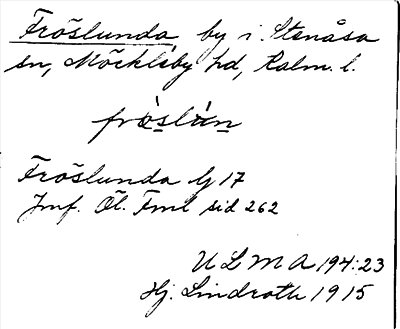 Fröslunda, by i. Stenåsa
sn, Möckleby hd, Kalm. l.
frö̀slún
Fröslunda G 17
Jmf. Öl. Fml sid 262
U L M A 194:23
Hj. Lindroth 1915